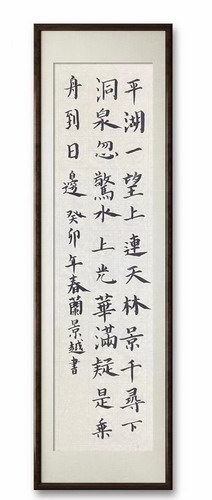 平湖一望上連天林景千尋下
洞泉忽驚水上光華滿疑是乘
舟到日邊 癸卯年春蘭景越書